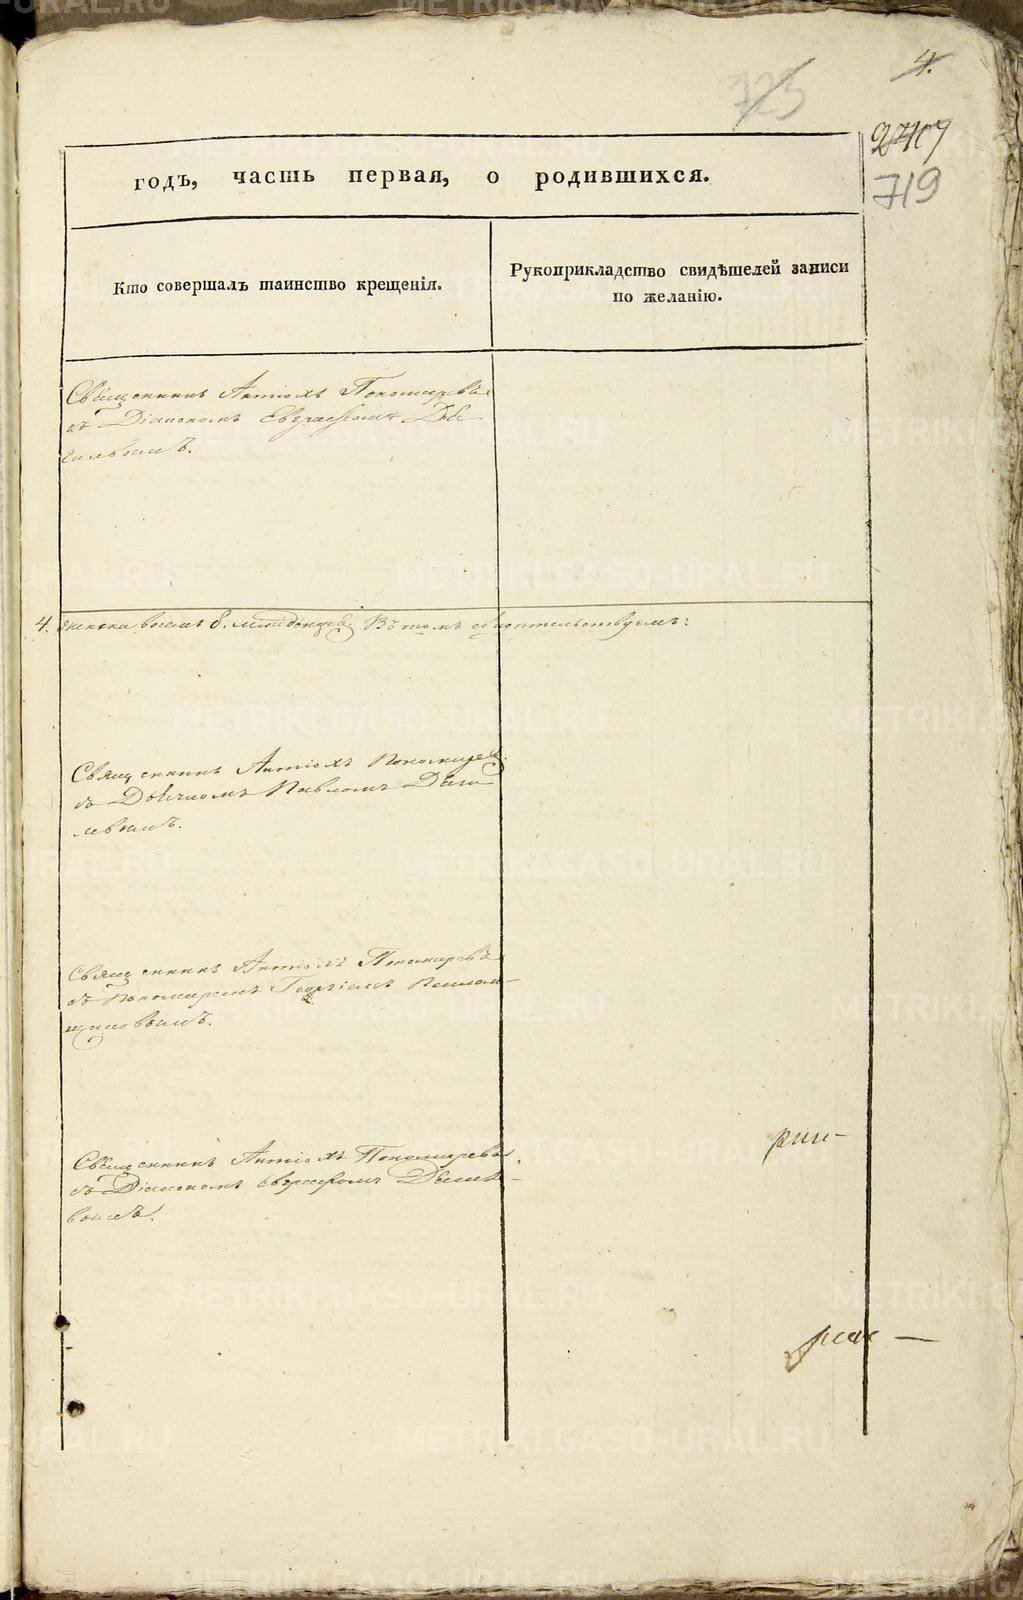 4.
725
2407
719
годъ, часть первая, о родившихся.
Кто совершалъ таинство крещенія.
Рукоприкладство свидѣтелей записи
по желанію.
Священникъ Антіохъ Пономаревъ
съ Діакономъ Евграфомъ Дѣ
гилевымъ.
4. женска восемь 8. младенцевъ. Въ томъ свидѣтельствуемъ:
Священникъ Антіохъ Пономаревъ
съ Дьячкомъ Павломъ Деги
левымъ.
Священникъ Антіохъ Пономаревъ
съ Пономаремъ Георгіемъ
Священникъ Антіохъ Пономаревъ
съ Діакономъ Евграфомъ
вымъ.
METRIKI.GASO-URAL.RU